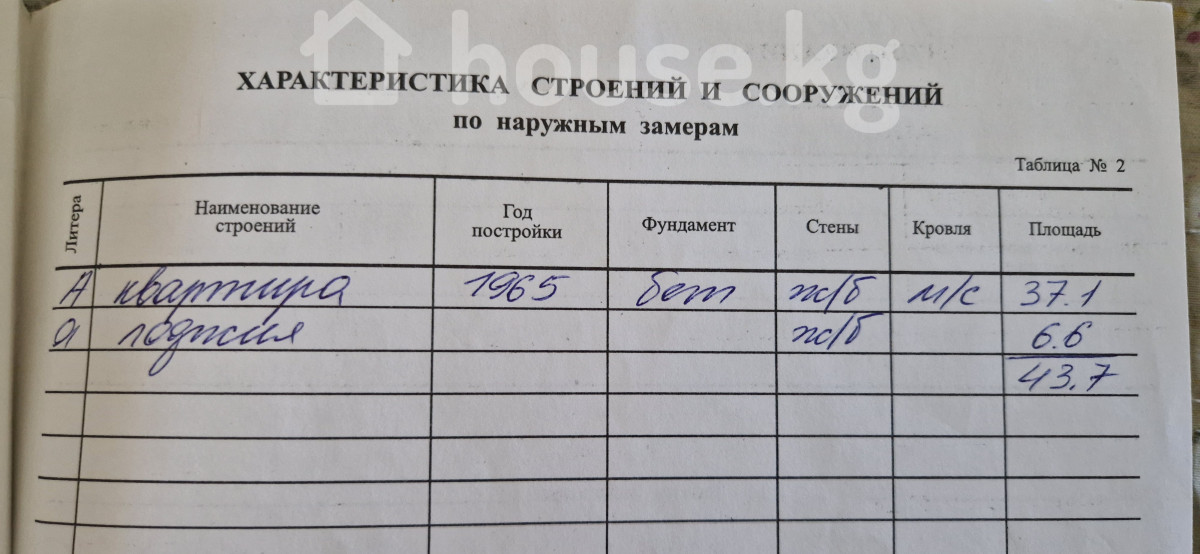 house.kg
ХАРАКТЕРИСТИКА СТРОЕНИЙ И СООРУЖЕНИЙ
по наружным замерам
Таблица № 2
Литера Наименование строений Год постройки Фундамент Стены Кровля Площадь
А квартира 1965 бет ж/б м/с 37.1
а лоджия ж/б 6.6
43.7